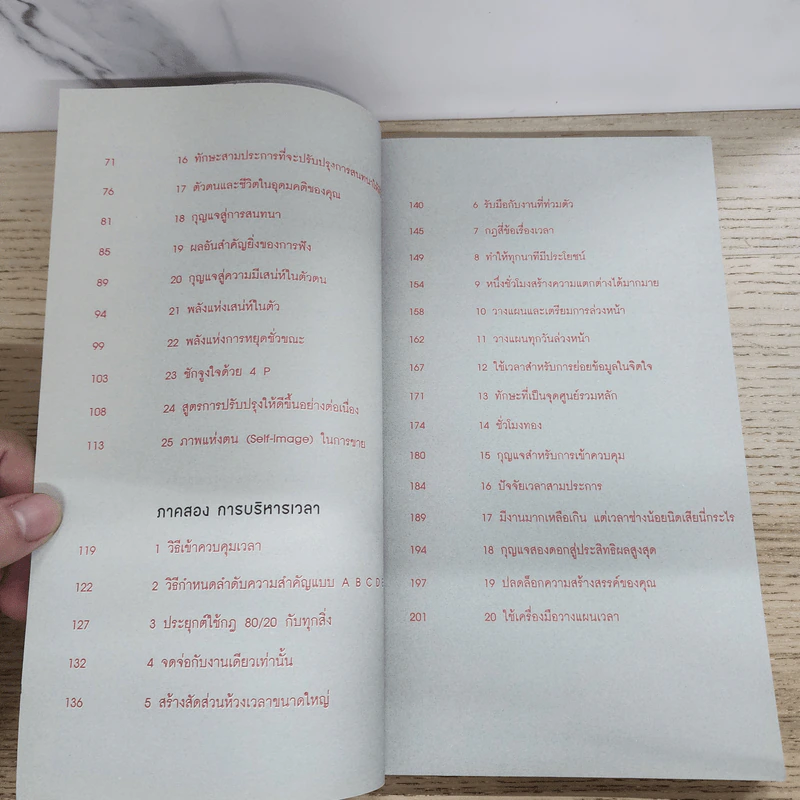 71 16 ทักษะสามประการที่จะปรับปรุงการสนทนา
76 17 ตัวตนและชีวิตในอุดมคติของคุณ
81 18 กุญแจสู่การสนทนา
85 19 ผลอันสำคัญยิ่งของการฟัง
89 20 กุญแจสู่ความมีเสน่ห์ในตัวตน
94 21 พลังแห่งเสน่ห์ในตัว
99 22 พลังแห่งการหยุดชั่วขณะ
103 23 ชักจูงใจด้วย 4 P
108 24 สูตรการปรับปรุงให้ดีขึ้นอย่างต่อเนื่อง
113 25 ภาพแห่งตน (Self-Image) ในการขาย
ภาคสอง การบริหารเวลา
119 1 วิธีเข้าควบคุมเวลา
122 2 วิธีกำหนดลำดับความสำคัญแบบ A B C D E
127 3 ประยุกต์ใช้กฎ 80/20 กับทุกสิ่ง
132 4 จดจ่อกับงานเดียวเท่านั้น
136 5 สร้างสัดส่วนห้วงเวลาขนาดใหญ่
140 6 รับมือกับงานที่ท่วมตัว
145 7 กฎสี่ข้อเรื่องเวลา
149 8 ทำให้ทุกนาทีมีประโยชน์
154 9 หนึ่งชั่วโมงสร้างความแตกต่างได้มากมาย
158 10 วางแผนและเตรียมการล่วงหน้า
162 11 วางแผนทุกวันล่วงหน้า
167 12 ใช้เวลาสำหรับการย่อยข้อมูลในจิตใจ
171 13 ทักษะที่เป็นจุดศูนย์รวมหลัก
174 14 ชั่วโมงทอง
180 15 กุญแจสำหรับการเข้าควบคุม
184 16 ปัจจัยเวลาสามประการ
189 17 มีงานมากเหลือเกิน แต่เวลาช่างน้อยนิดเสียนี่กระไร
194 18 กุญแจสองดอกสู่ประสิทธิผลสูงสุด
197 19 ปลดล็อกความสร้างสรรค์ของคุณ
201 20 ใช้เครื่องมือวางแผนเวลา